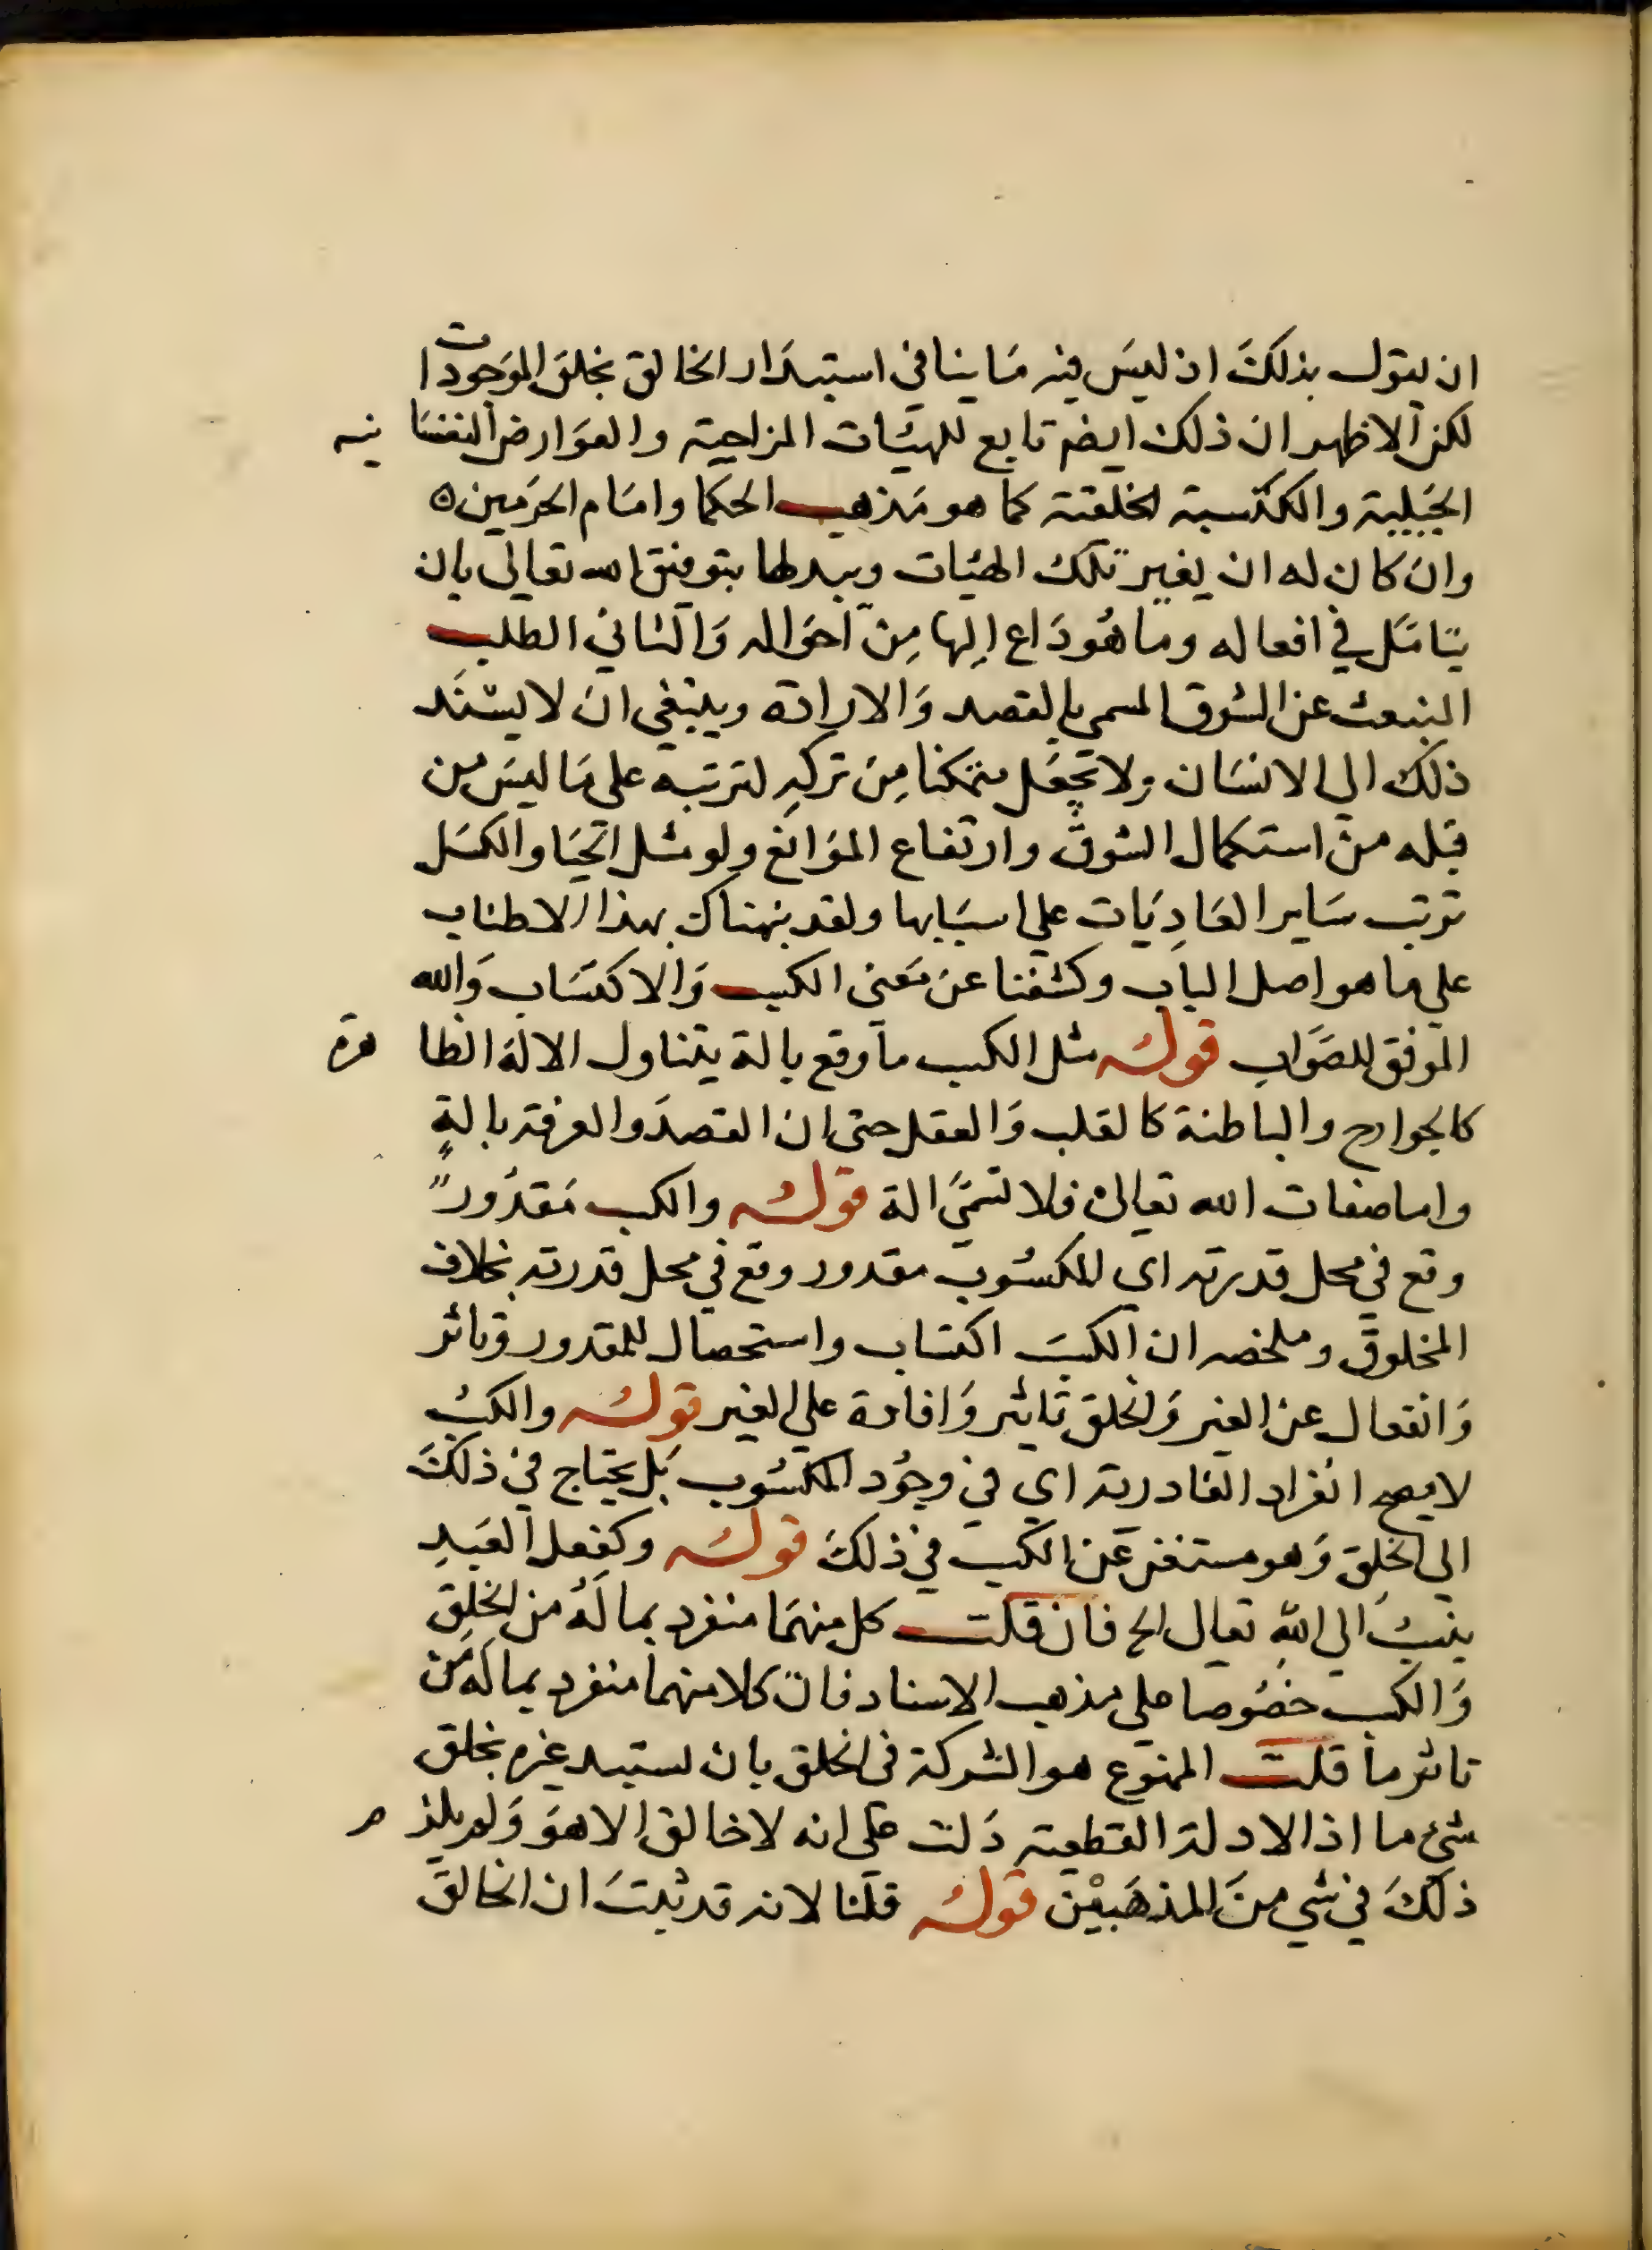 ان يقول بذلك اذ ليس فيه ما ينافي استبداد الخالق بخلق الموجودات
لكن الاظهر ان ذلك ايضم تابع للهيئات المزاجية والعوارض النفسانيه
الجبلية والمكتسبة الخلقية كما هو مذهب الحكما وامام الحرمين ه
وان كان له ان يغير تلك الهيئات ويبدلها بتوفيق الله تعالى بان
يتامل في افعاله وما هو داع اليها من احواله والثاني الطلب
المنبعث عن الشوق المسمى بالقصد والارادة وينبغي ان لا يستند
ذلك الي الانسان ولا تجعل متمكنا من تركه لترتبه على ما ليس من
قبله من استكمال الشوق وارتفاع الموانع ولو مثل الحيا والكسل
ترتب ساير العاديات على اسبابها ولقد نبهناك بهذا الاطناب
علي ما هو اصل الباب وكشفنا عن معنى الكسب والاكتساب والله
الموفق للصواب قوله مثل الكسب ما وقع بالة يتناول الالة الظاهرة
كالجوارح والباطنة كالقلب والعقل حتى ان القصد والعرفة بالة
واما صفات الله تعالى فلا تسمى الة قوله والكسب مقدور
وقع في محل قدرته اي المكسوب مقدور وقع في محل قدرته بخلاف
المخلوق وملخصه ان الكسب اكتساب واستحصال للمقدور وتاثر
وانفعال عن الغير والخلق تاثير وافادة على الغير قوله والكسب
لا يصح انفراد القادر به اي في وجود المكسوب بل يحتاج في ذلك
الى الخلق وهو مستغن عن الكسب في ذلك قوله وكفعل العبد
ينسب الي الله تعالى الخ فان قلت كل منهما منفرد بما له من الخلق
والكسب خصوصا على مذهب الاسناد فان كلا منهما منفرد بما له من
تاثير ما قلت الممنوع هو الشركة في الخلق بان يستبد غيره بخلق
شيء ما اذ الادلة القطعية دلت على انه لا خالق الا هو ولم يلزم
ذلك في شي من المذهبين قوله قلنا لانه قد ثبت ان الخالق